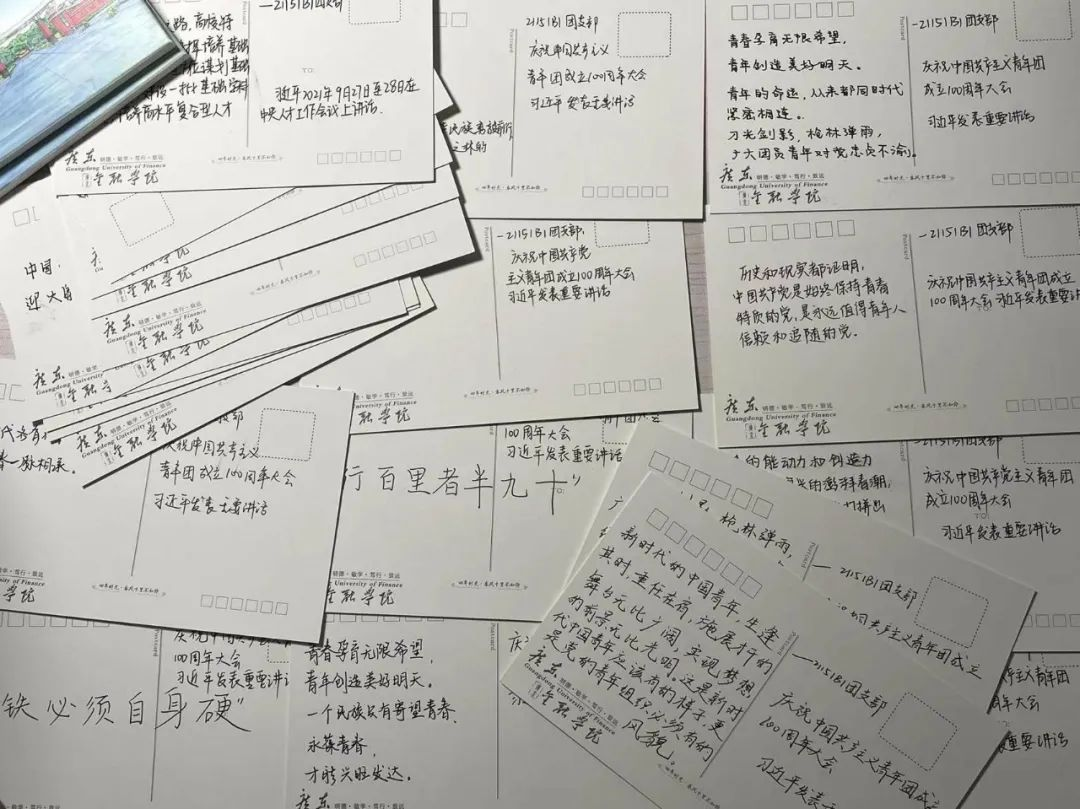 -21151B1团支部
高水平复合型人才
TO:
习近平2021年9月27日至28日在
中央人才工作会议上讲话.
广东 明德·敏学·笃行·致远
Guangdong University of Finance
金融学院
Postcard
-21151B1团支部
庆祝中国共产主义
青年团成立100周年大会
习近平发表重要讲话
青春孕育无限希望,
青年创造美好明天。
青年的命运,从来都同时代
紧密相连。
刀光剑影,枪林弹雨,
广大团员青年对党忠贞不渝。
-21151B1团支部
庆祝中国共产主义青年团
成立100周年大会
习近平发表重要讲话
广东 明德·敏学·笃行·致远
Guangdong University of Finance
金融学院
中国,
Postcard
-21151B1团支部.
庆祝中国共产党
主义青年团成立100周年大会
习近平发表重要讲话
历史和现实都证明,
中国共产党是始终保持青春
特质的党,是永远值得青年人
信赖和追随的党.
Postcard
-21151B1团支部
庆祝中国共产主义青年团成立
100周年大会 习近平发表重要讲
广东 明德·敏学·笃行·致远
Guangdong University of Finance
金融学院
广东 明德·敏学·笃行·致远
Guangdong University of Finance
金融学院
一脉相承。
庆祝中国共产主义
青年团成立100周年大会
习近平发表重要讲话
100周年大会
习近平发表重要讲话
行百里者半九十”
的能动力和创造力
-21151B1团支部
庆祝中国共产党主义青年团
成立100周年大会
习近平发表重要讲话
明德·敏学·笃行·致远
University of Finance
金融学院
枪林弹雨,
—21151B1团支部
共产主义青年团成立
新时代的中国青年,生逢
其时,重任在肩,施展才干的
舞台无比广阔,实现梦想
的前景无比光明。这是新时
代中国青年应该有的样子,更
是党的青年组织必须有的
风貌,
广东
金融学院
Postcard
—21151B1团支部
庆祝中国共产主义青年团成
100周年大会
习近平发表
100周年大会
习近平发表重要讲
铁必须自身硬”
青春孕育无限希望,
青年创造美好明天。
一个民族只有寄望青春、
永葆青春,
才能兴旺发达。
主义青年团
周年大会
重要讲话